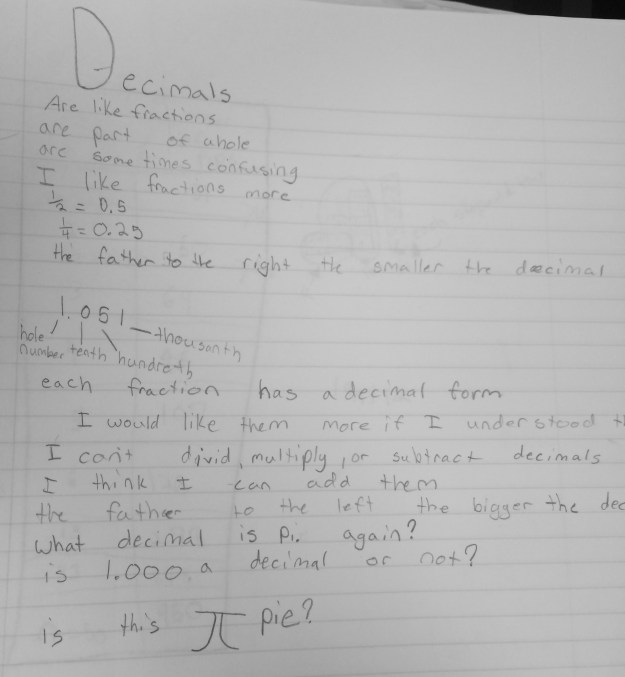 Decimals
Are like fractions
are part of a hole
are some times confusing
I like fractions more
1/2 = 0.5
1/4 = 0.25
the father to the right the smaller the decimal
1.051
hole number tenth hundreth thousanth
each fraction has a decimal form
I would like them more if I understood
I can't divid, multiply, or subtract decimals
I think I can add them
the father to the left the bigger the dec
What decimal is Pi. again?
is 1.000 a decimal or not?
is this π pie?